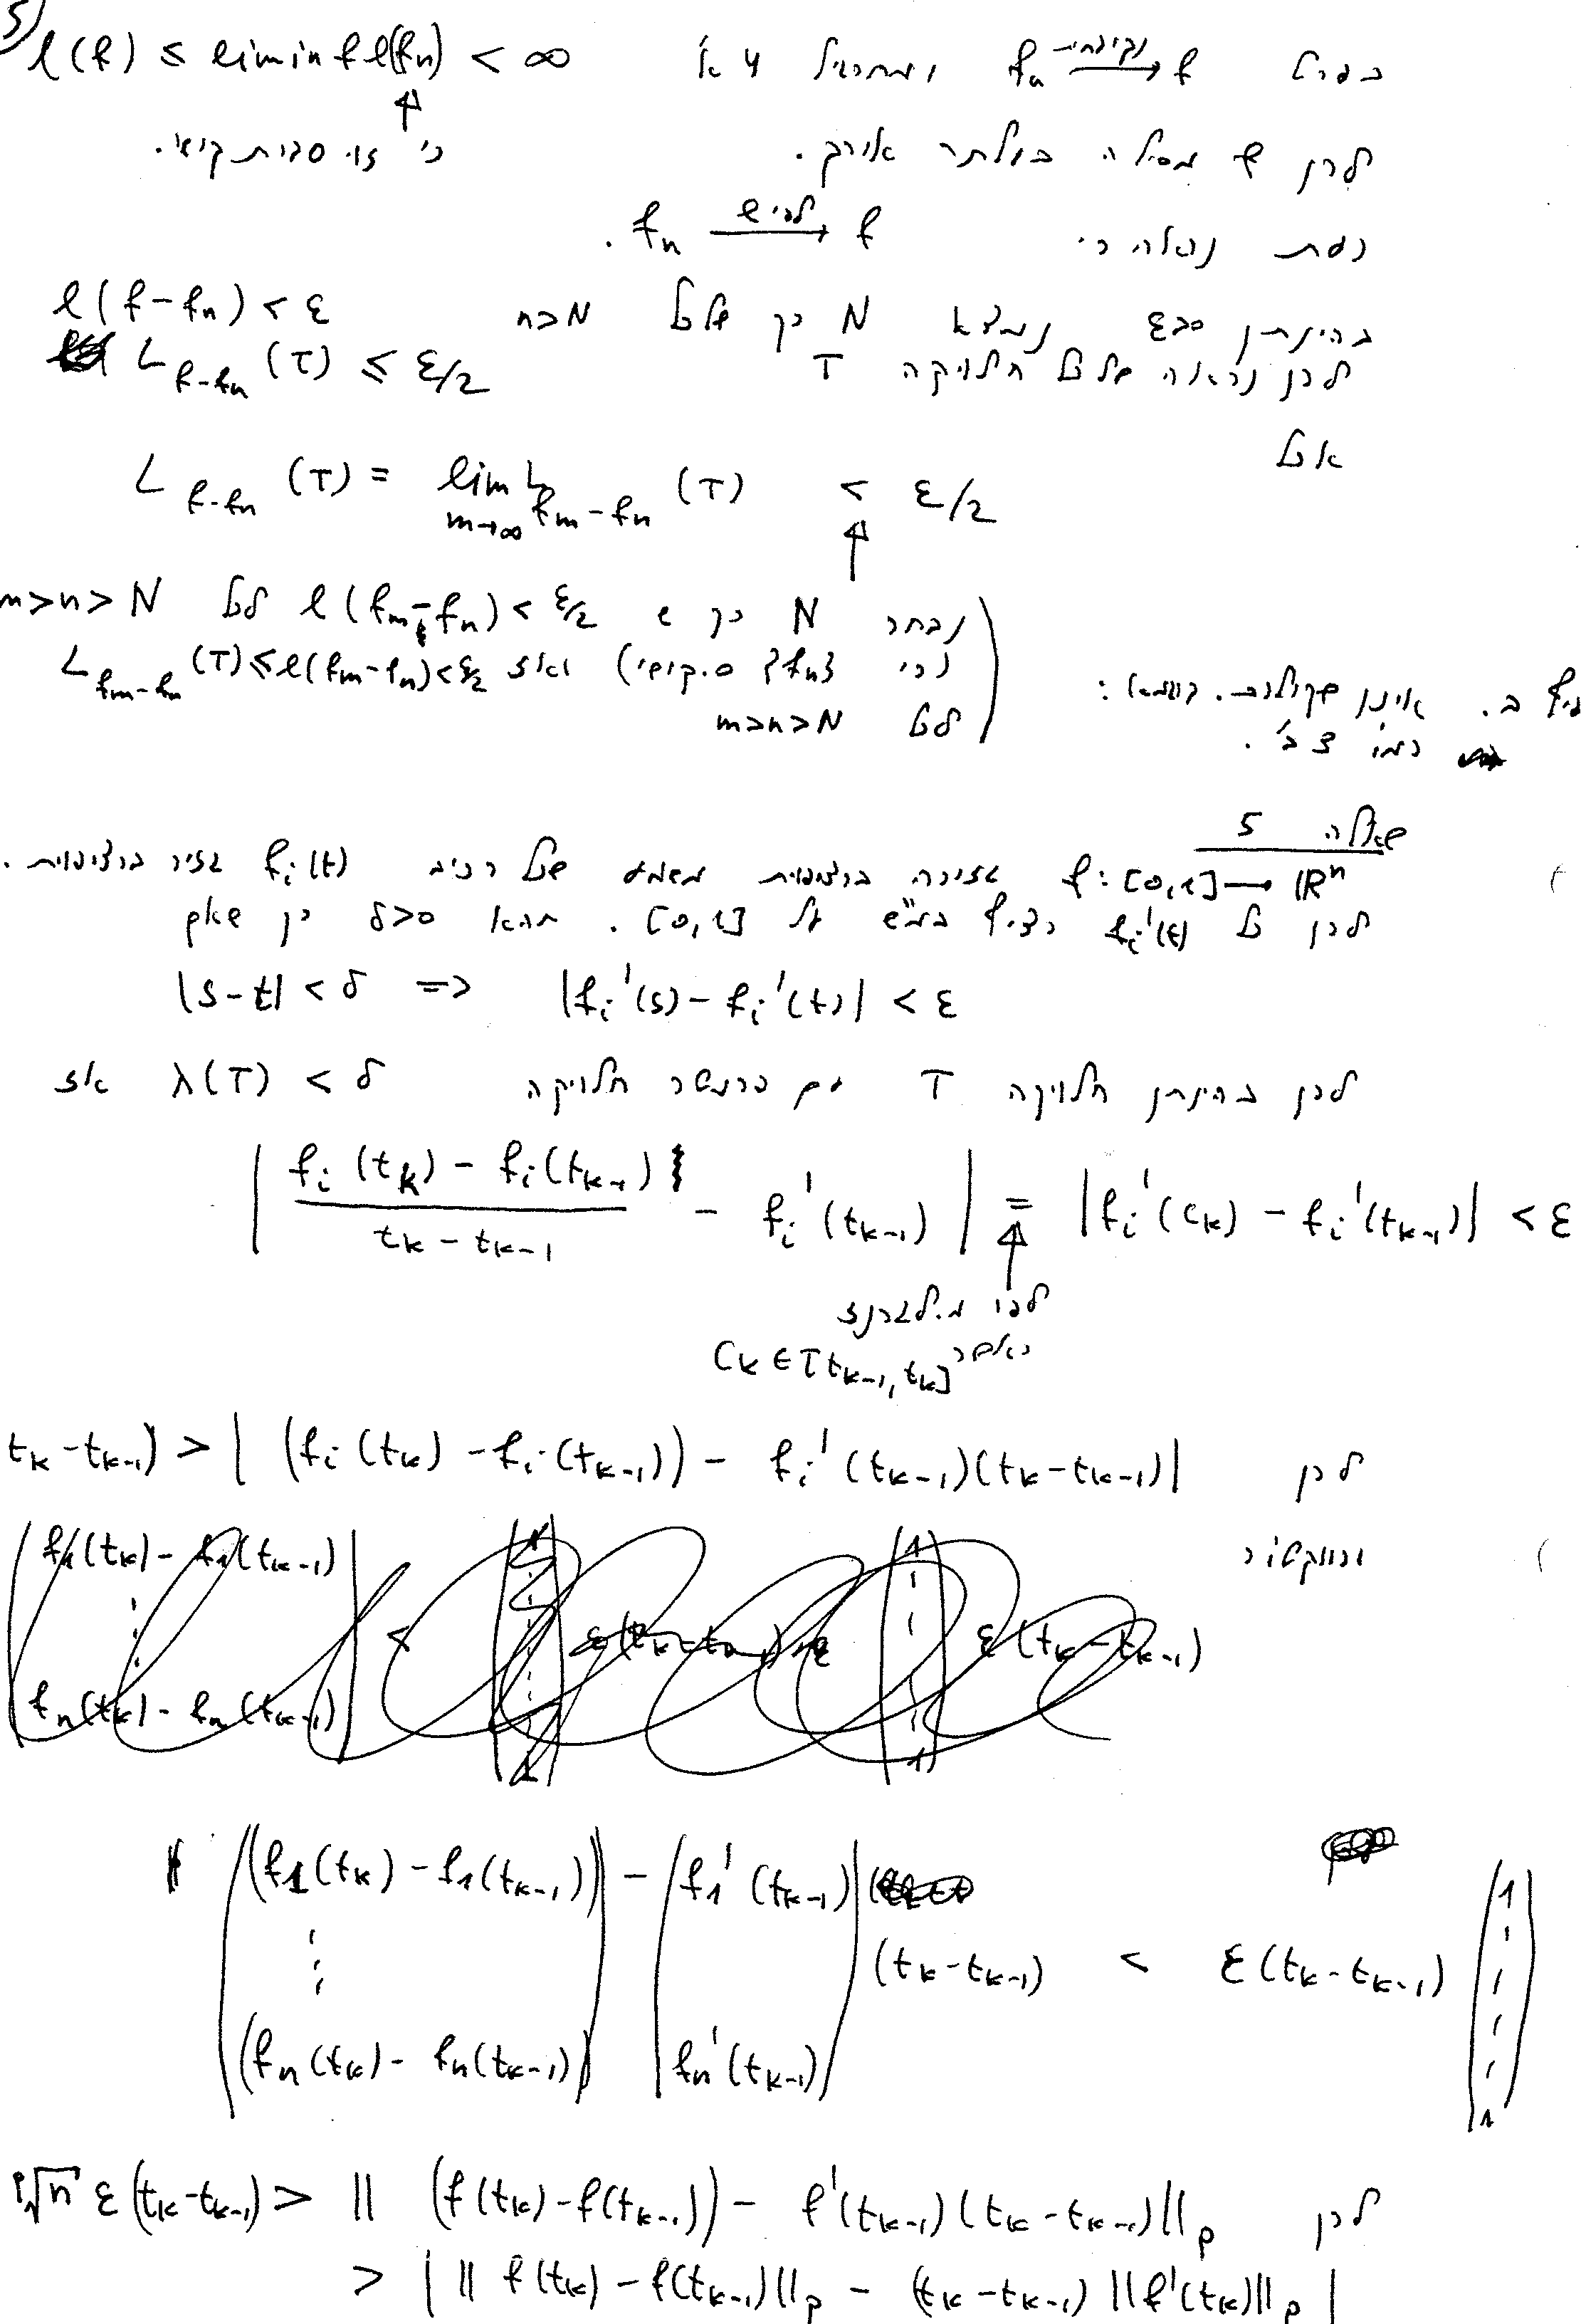 5)
בפרט f_n —נקודתית→ f ומתרגיל 4 א' l(f) ≤ liminf l(f_n) < ∞
↑
לכן f מסילה בעלת אורך. כי זו סדרת קושי.
כעת נראה כי f_n —לפי l→ f.
בהינתן ε>0 נמצא N כך שלכל n>N l(f-f_n) < ε
לכן נראה שלכל חלוקה T L_{f-f_n}(T) ≤ ε/2
אבל
L_{f-f_n}(T) = lim_{m→∞} L_{f_m-f_n}(T) < ε/2
↑
נבחר N כך ש l(f_m-f_n) < ε/2 לכל m>n>N
(כי {f_n} ס. קושי) ואז L_{f_m-f_n}(T) ≤ l(f_m-f_n) < ε/2
לכל m>n>N
ב. אינן שקולות. דוגמא:
כמו 3 ב'.
שאלה 5
f:[0,1]→ℝ^n גזירה ברציפות משמע שכל רכיב f_i(t) גזיר ברציפות.
לכן כל f_i'(t) רציף במ"ש על [0,1]. תהא δ>0 כך שאם
|s-t| < δ => |f_i'(s) - f_i'(t)| < ε
לכן בהינתן חלוקה T עם פרמטר חלוקה λ(T) < δ אז
| (f_i(t_k) - f_i(t_{k-1})) / (t_k - t_{k-1}) - f_i'(t_{k-1}) | = |f_i'(c_k) - f_i'(t_{k-1})| < ε
↑
לפי מ.לגרנז
כאשר c_k ∈ [t_{k-1}, t_k]
לכן t_k - t_{k-1}) > | (f_i(t_k) - f_i(t_{k-1})) - f_i'(t_{k-1})(t_k - t_{k-1}) |
ובוקטור
(f_1(t_k) - f_1(t_{k-1})) - (f_1'(t_{k-1})) (t_k - t_{k-1}) < ε(t_k - t_{k-1}) (1
⋮
(f_n(t_k) - f_n(t_{k-1})) f_n'(t_{k-1}) 1)
לכן ᵖ√n ε(t_k - t_{k-1}) > ‖ (f(t_k) - f(t_{k-1})) - f'(t_{k-1})(t_k - t_{k-1}) ‖_p
> | ‖f(t_k) - f(t_{k-1})‖_p - (t_k - t_{k-1}) ‖f'(t_k)‖_p |